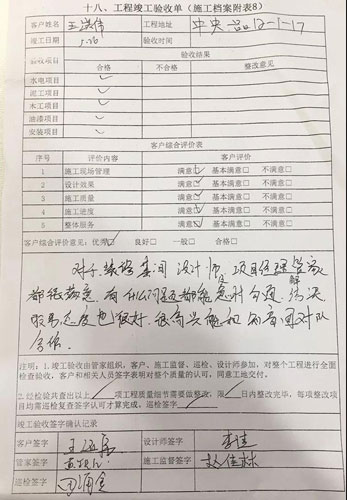 十八、工程竣工验收单（施工档案附表8）
客户姓名 王洪伟 工程地址 中央品12-1-17
竣工日期 5.20 验收时间
验收项目 验收结果
合格 不合格 整改意见
水电项目 ✓
泥工项目 ✓
木工项目 ✓
油漆项目 ✓
安装项目 ✓
客户综合评价表
序号 评价内容 客户评价
1 施工现场管理 满意☑ 基本满意□ 不满意□
2 设计效果 满意☑ 基本满意□ 不满意□
3 施工质量 满意☑ 基本满意□ 不满意□
4 施工进度 满意☑ 基本满意□ 不满意□
5 整体服务 满意☑ 基本满意□ 不满意□
客户综合评价意见：优秀☑ 良好□ 一般□ 合格□
对于装修期间 设计师，项目经理管家
都很满意，有什么问题都能及时沟通，解决
服务态度也很好，很高兴能和 团队
合作.
注明：1.竣工验收由管家组织，客户、施工监督、巡检、设计师参加，对整个工程进行全面
检查验收，客户和相关人员签字表明对整个质量的认可，同意工地交付。
2.经检验共查出以上 项工程质量细节需要做整改，限 日内整改完毕，每项整改项
目均需巡检复查签字认可才算完成。巡检签字：
竣工验收签字确认记录
客户签字 设计师签字 李佳
管家签字 施工监督签字 赵佳林
巡检签字